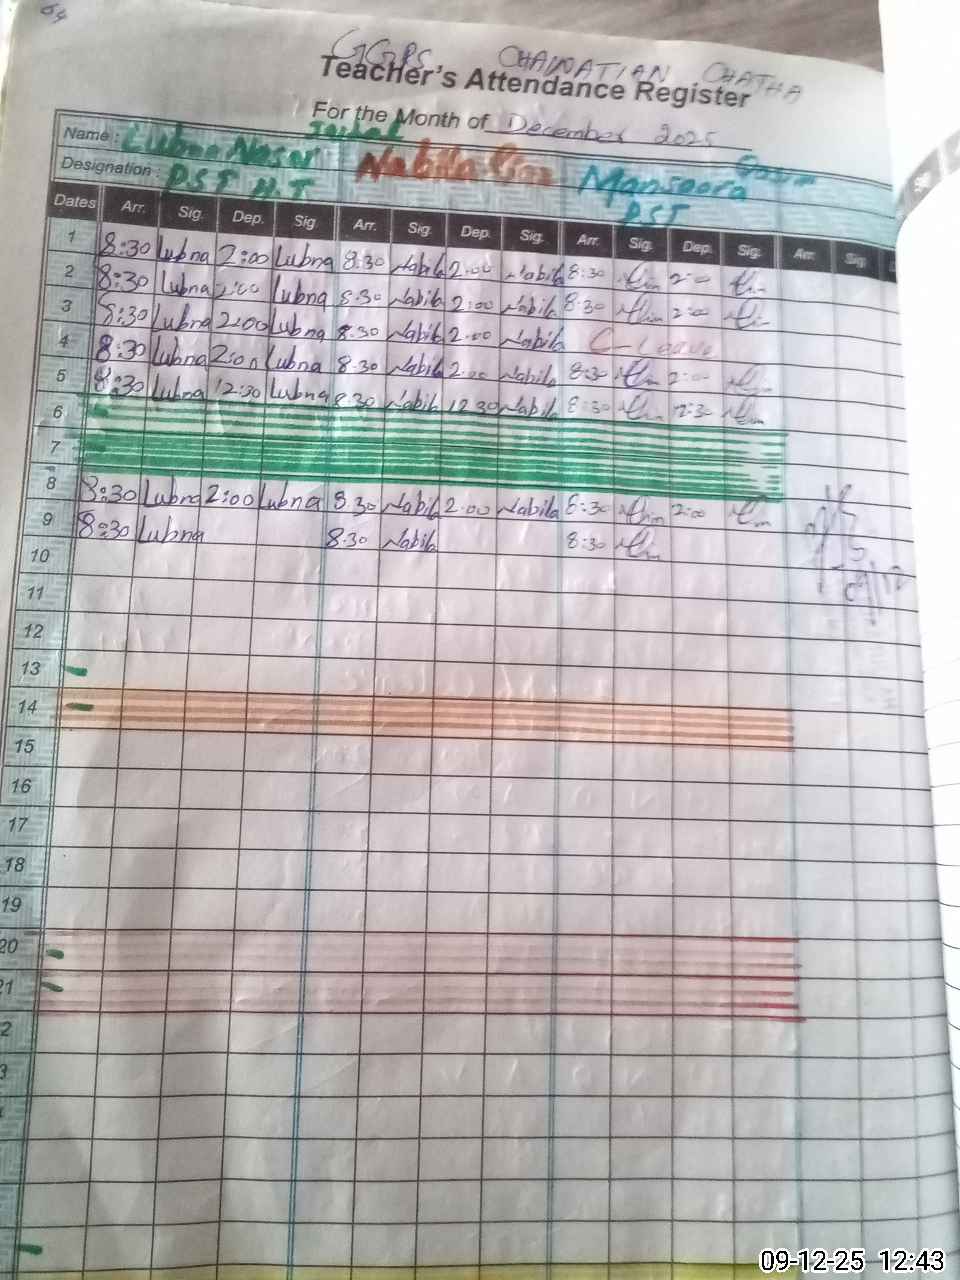 GGPS CHAINATIAN CHATHA
Teacher's Attendance Register
For the Month of December 2025
Name : Lubna Nasar Nabila Mansoora
Designation : PST H.T PST
Dates Arr. Sig. Dep. Sig. Arr. Sig. Dep. Sig. Arr. Sig. Dep. Sig. Arr. Sig.
1 8:30 Lubna 2:00 Lubna 8:30 Nabila 2:00 Nabila 8:30 2:00
2 8:30 Lubna 2:00 Lubna 8:30 Nabila 2:00 Nabila 8:30 2:00
3 8:30 Lubna 2:00 Lubna 8:30 Nabila 2:00 Nabila C-Leave
4 8:30 Lubna 2:00 Lubna 8:30 Nabila 2:00 Nabila 8:30 2:00
5 8:30 Lubna 12:30 Lubna 8:30 Nabila 12:30 Nabila 8:30 12:30
6
7
8 8:30 Lubna 2:00 Lubna 8:30 Nabila 2:00 Nabila 8:30 2:00
9 8:30 Lubna 8:30 Nabila 8:30
10
11
12
13
14
15
16
17
18
19
20
21
09-12-25 12:43